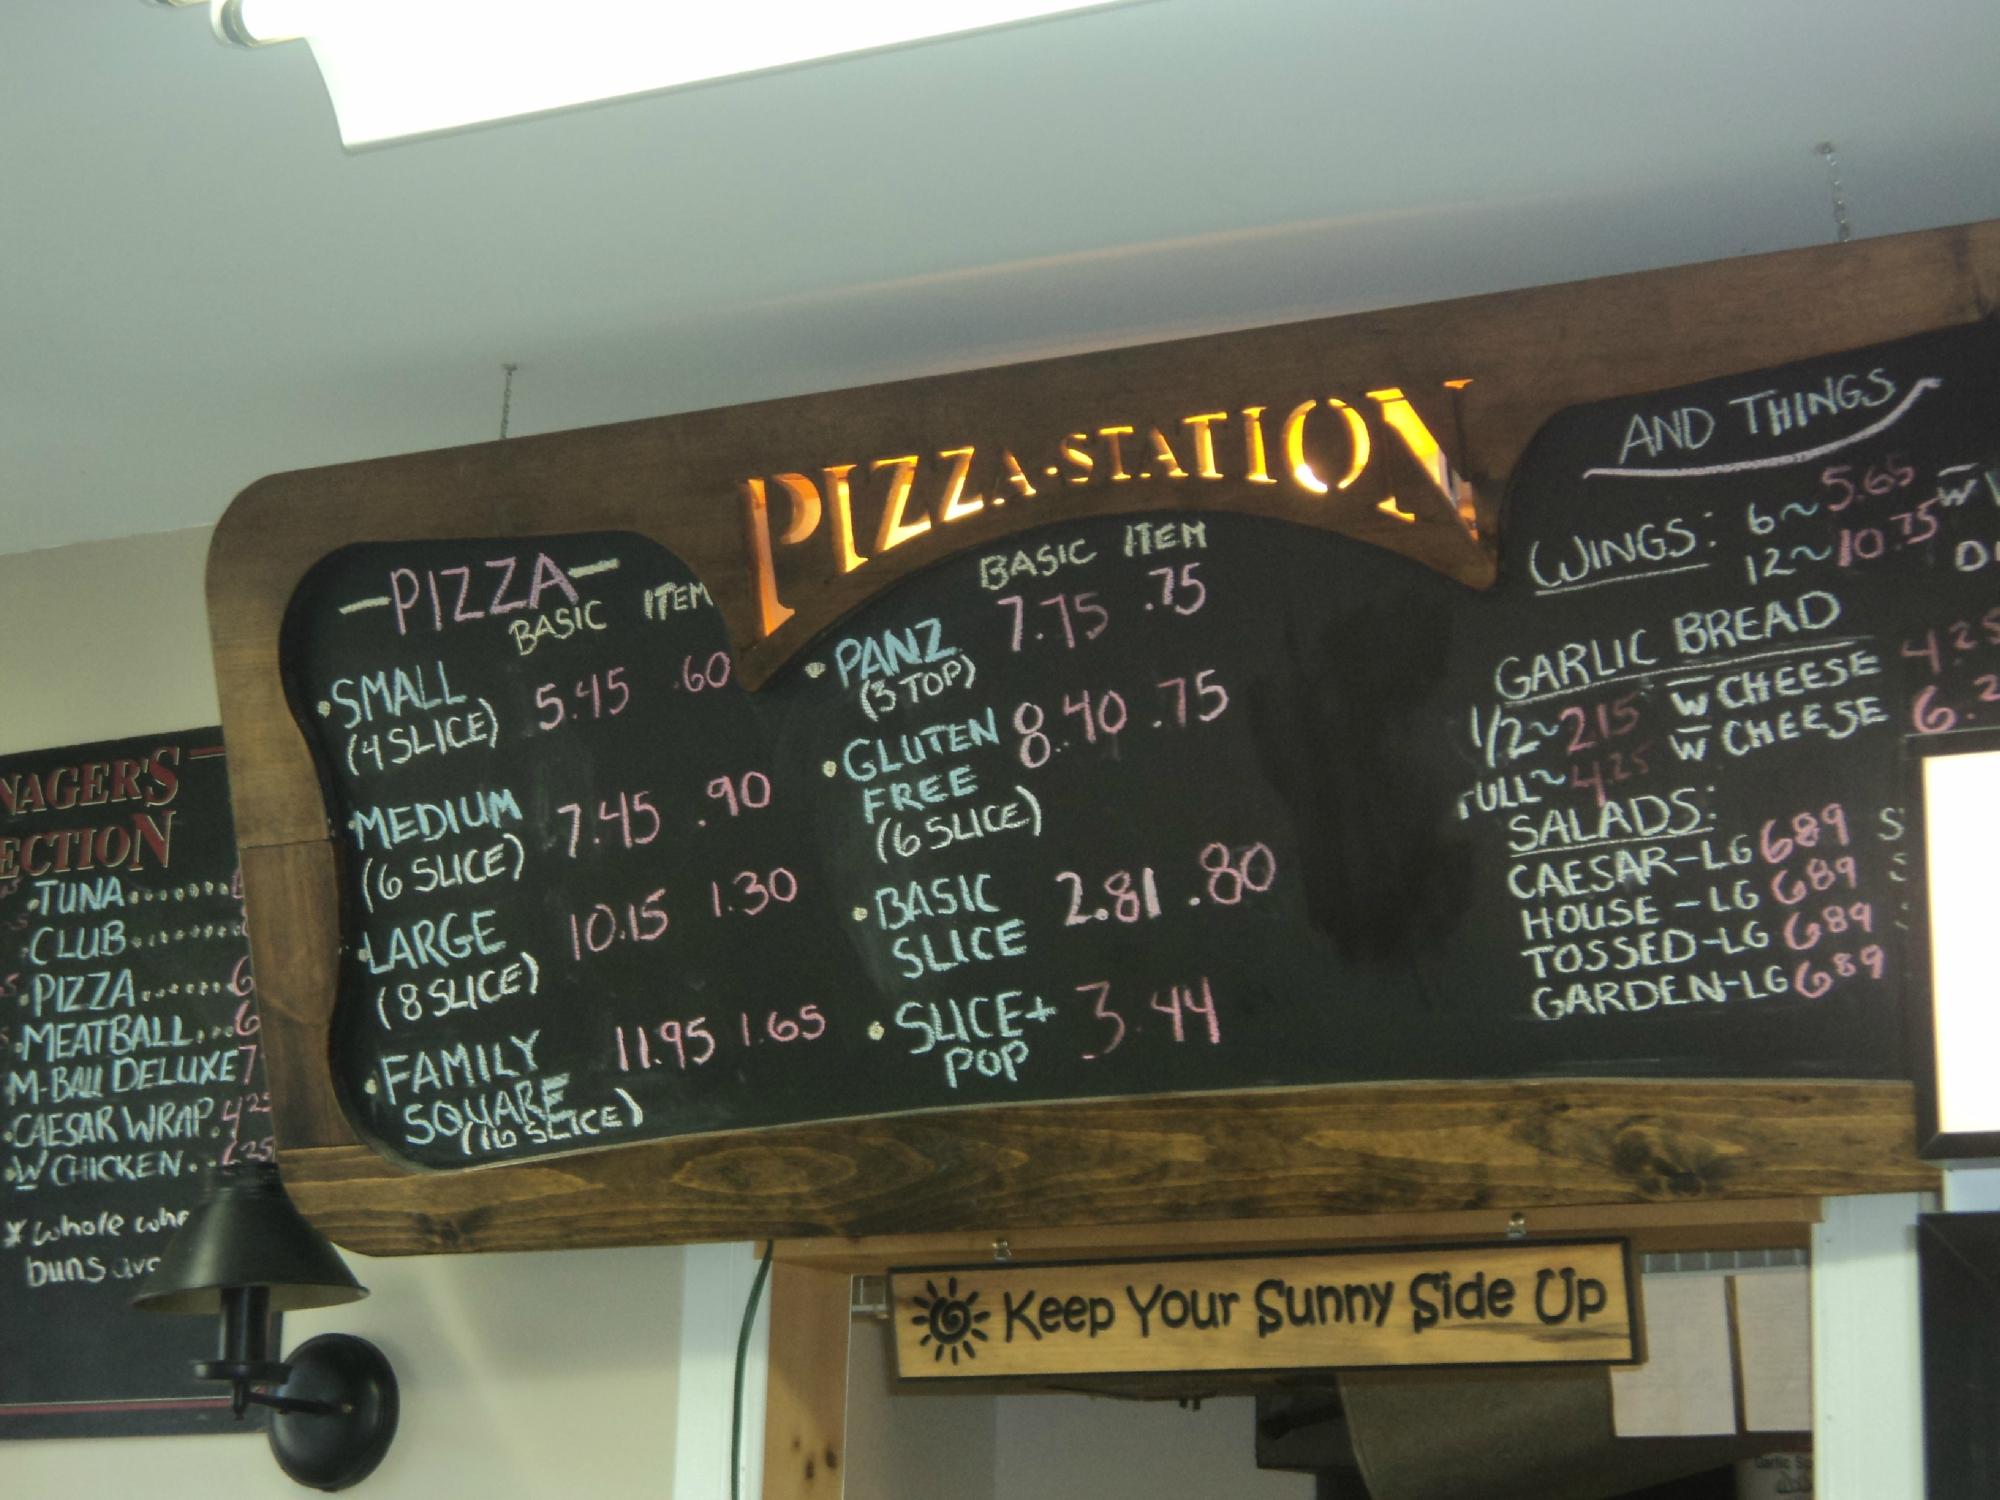 PIZZA-STATION
-PIZZA-
BASIC ITEM
•SMALL 5.45 .60
(4 SLICE)
•MEDIUM 7.45 .90
(6 SLICE)
•LARGE 10.15 1.30
(8 SLICE)
•FAMILY 11.95 1.65
SQUARE
(16 SLICE)
BASIC ITEM
•PANZ 7.75 .75
(3 TOP)
•GLUTEN 8.40 .75
FREE
(6 SLICE)
•BASIC 2.81 .80
SLICE
•SLICE+ 3.44
POP
AND THINGS
WINGS: 6~5.65 W
12~10.75
GARLIC BREAD
1/2~215 W CHEESE 4.25
FULL~425 W CHEESE 6.2
SALADS:
CAESAR-LG 689
HOUSE-LG 689
TOSSED-LG 689
GARDEN-LG 689
NAGER'S
ECTION
•TUNA........
•CLUB.........
•PIZZA........6
•MEATBALL...6
M-BALL DELUXE 7
•CAESAR WRAP.425
•W CHICKEN..625
* whole
buns
Keep Your Sunny Side Up